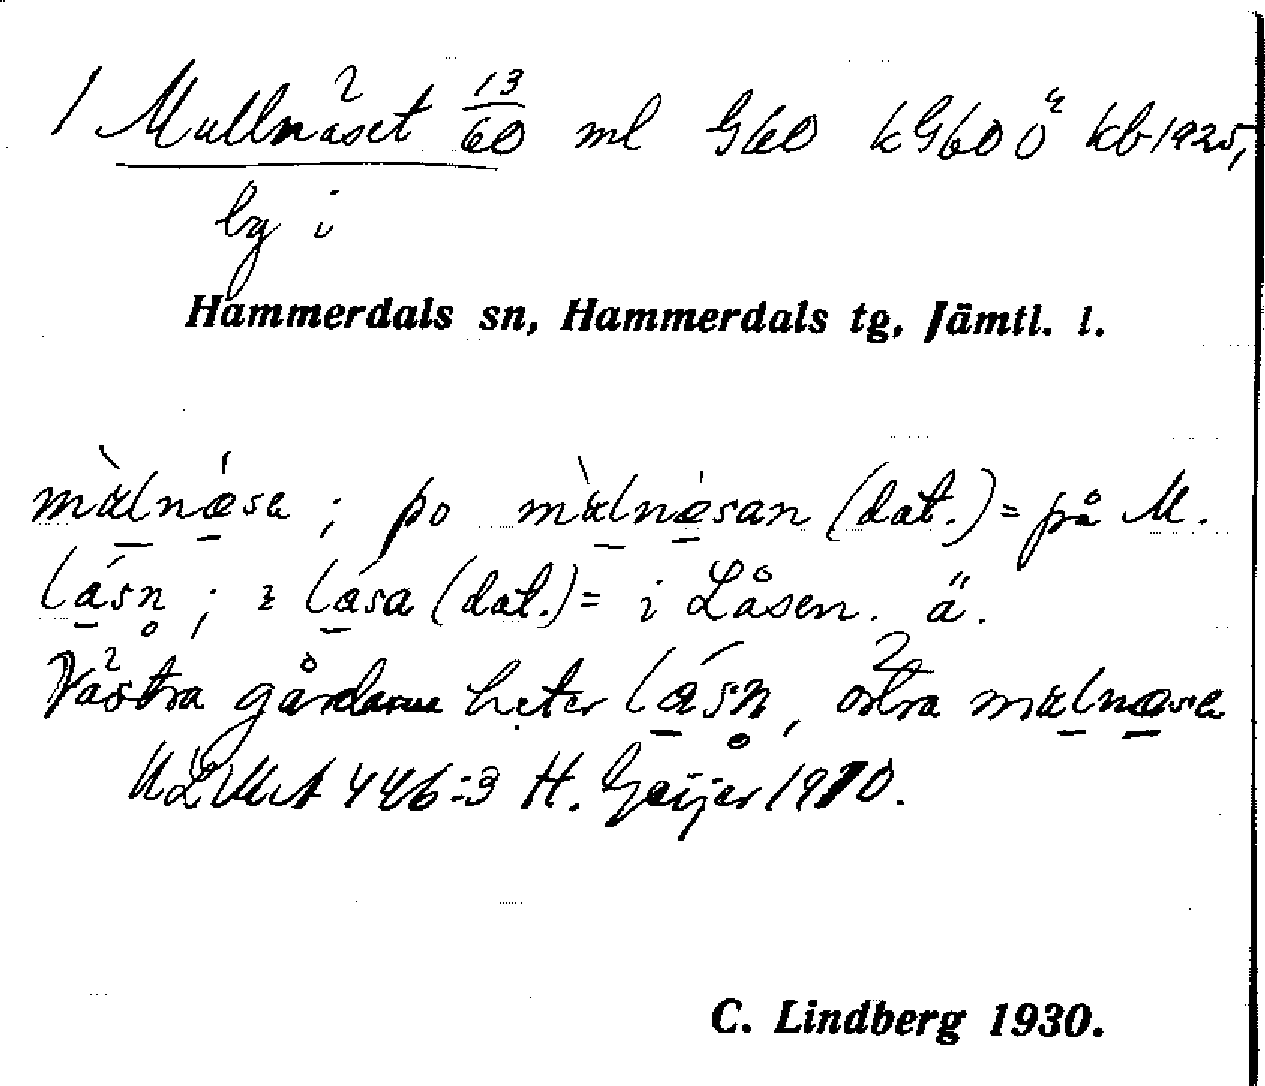 1 Mullnäset 13/60 ml G60 kG60 ö kb 1925,
by i
Hammerdals sn, Hammerdals tg, Jämtl. l.
; po (dat.) = på M.
; i låsa (dat.) = i Låsen. ä.
Västra gårdarne heter låsn, östra
446:3 H. Geijer 1910.
C. Lindberg 1930.